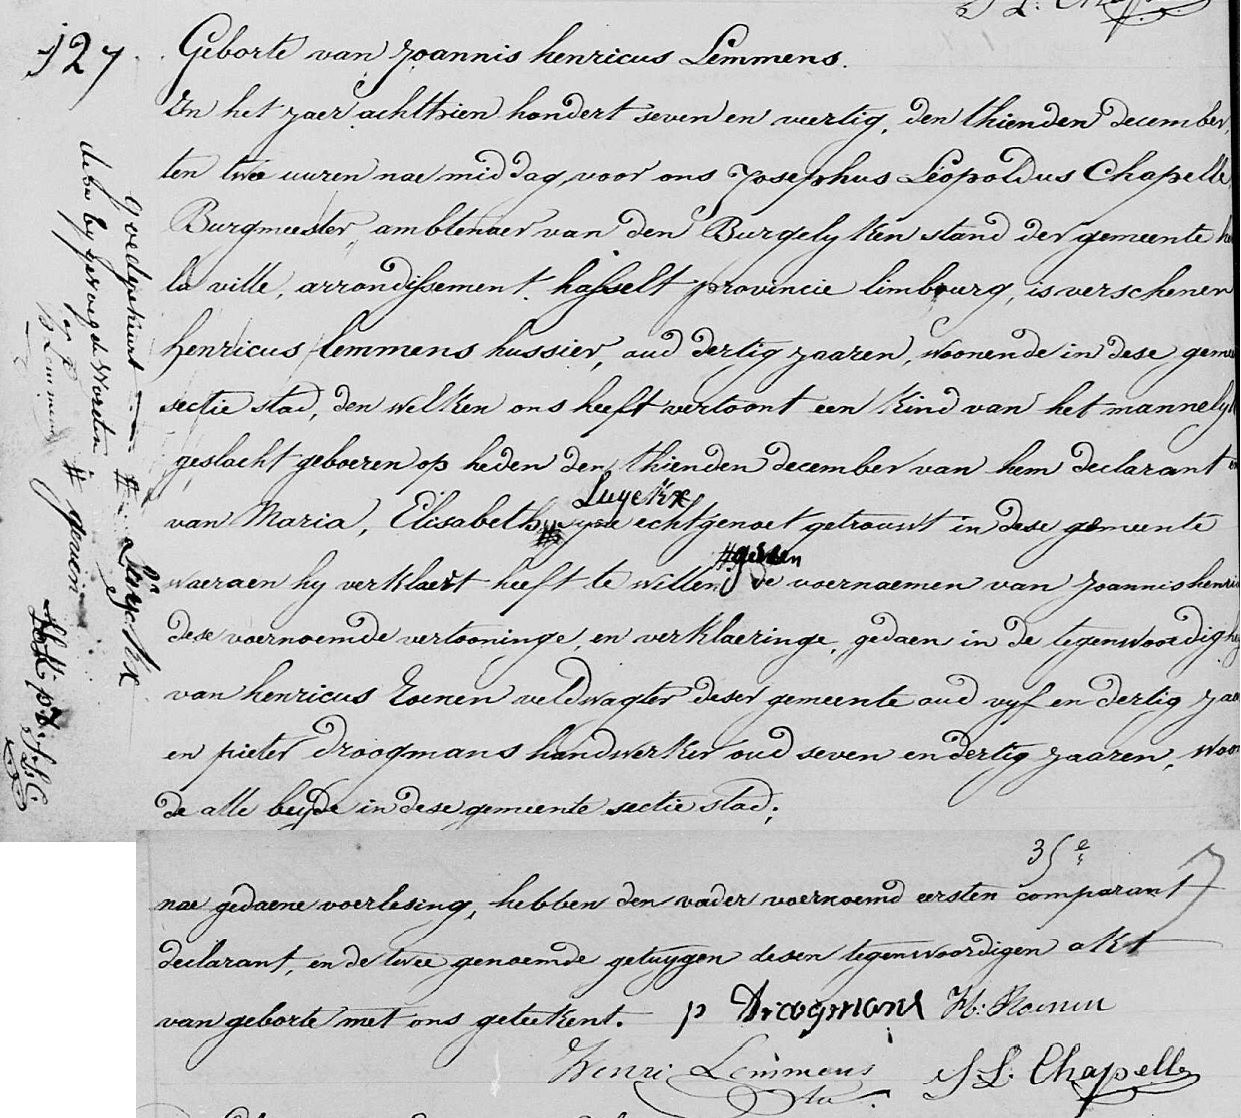 127
Geborte van Joannis henricus Lemmens.
In het jaer achthien hondert seven en veertig, den thienden december,
ten twe uuren nae middag, voor ons Josephus Leopoldus Chapelle
Burgmeester, ambtenaer van den Burgelyken stand der gemeente
la ville, arrondissement hasselt provincie limbourg, is verschenen
henricus lemmens hussier, oud dertig jaaren, woonende in dese
sectie stad, den welken ons heeft vertoont een kind van het mannelyk
geslacht geboeren op heden den thienden december van hem declarant
Luyckx
van Maria, Elisabeth echtgenoet getrouwt in dese gemeente
# geven
waeraen hy verklaert heeft te willen de voernaemen van Joannis
dese voernoemde vertooninge, en verklaeringe, gedaen in de
van henricus veldwagter deser gemeente oud vyf en dertig
en pieter Droogmans handwerker oud seven en dertig jaaren,
de alle beyde in dese gemeente sectie stad;
goedgekeurt
Luyckx
bygevoegde woorden
# geven
35e
nae gedaene voorlesing, hebben den vader voernoemd eersten comparant
declarant, en de twee genoemde getuygen desen tegenwoordigen akt
van geborte met ons geteekent. p Droogmans H:
Henri Lemmens J L: Chapelle